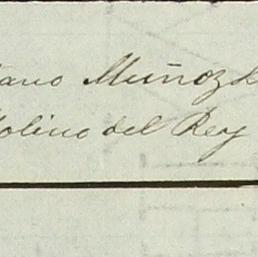 ano Muñoz
Molino del Rey